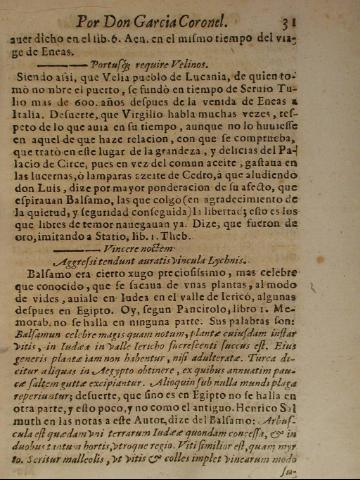 Por Don Garcia Coronel. 31
auer dicho en el lib. 6. Aen. en el mismo tiempo del via-
ge de Eneas.
Portusq; require Velinos.
Siendo assi, que Velia pueblo de Lucania, de quien to-
mò nombre el puerto, se fundò en tiempo de Seruio Tu-
lio mas de 600. años despues de la venida de Eneas a
Italia. Desuerte, que Virgilio habla muchas vezes, res-
peto de lo que auia en su tiempo, aunque no lo huuiesse
en aquel de que haze relacion, con que se comprueba,
que tratò en este lugar de la grandeza, y delicias del Pa-
lacio de Circe, pues en vez del comun aceite, gastaua en
las lucernas, ò lamparas azeite de Cedro, à que aludiendo
don Luis, dize por mayor ponderacion de su afecto, que
espirauan Balsamo, las que colgo (en agradecimiento de
la quietud, y seguridad conseguida) la libertad; esto es los
que libres de temor nauegauan ya. Dize, que fueron de
oro, imitando a Statio, lib. 1. Theb.
Vincere noctem
Aggressi tendunt auratis vincula Lychnis.
Balsamo era cierto xugo preciosissimo, mas celebre
que conocido, que se sacaua de vnas plantas, al modo
de vides, auiale en Iudea en el valle de Iericò, algunas
despues en Egipto. Oy, segun Pancirolo, libro 1. Me-
morab. no se halla en ninguna parte. Sus palabras son:
Balsamun celebre magis quam notum, plantæ cuiusdam instar
vitis, in Iudæa in valle Iericho sucrescenti succus est. Eius
generis plantæ iam non habentur, nisi adulteratæ. Turca di-
citur aliquas in Aegypto obtinere, ex quibus annuatim pau-
cæ saltem guttæ excipiantur. Alioquin sub nulla mundi plaga
reperiuntur; desuerte, que sino es en Egipto no se halla en
otra parte, y esto poco, y no como el antiguo. Henrico Sal
muth en las notas a este Autor, dize del Balsamo: Arbus-
cula est quædam vni terrarum Iudææ quondam concessa, & in
duobus tantum hortis, vtroque regio. Viti similior est, quam myr
to. Seritur malleolis, vt vitis & colles implet vinearum modo